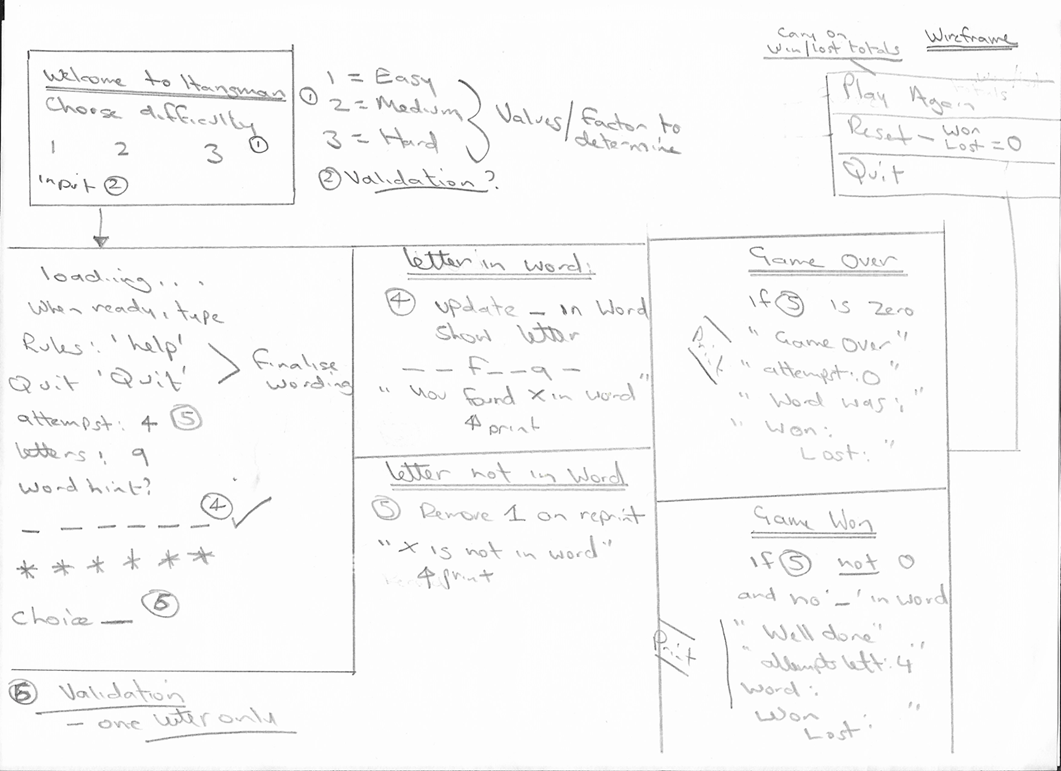 Wireframe
Carry on
Win/lost totals
Play Again
Reset - Won
Lost = 0
Quit
Welcome to Hangman
Choose difficulty
1 2 3 ①
input ②
① 1 = Easy
2 = Medium
3 = Hard
Values/factor to
determine
② Validation?
loading...
When ready, type
Rules: 'help'
Quit 'Quit'
Finalise
wording
attempst: 4 ⑤
letters: 9
Word hint?
_ _ _ _ _ _ ④ ✓
* * * * * *
Choice _ ⑥
⑥ Validation
- one letter only
letter in word:
④ update _ in Word
Show letter
_ _ F _ _ a _
"You found X in word"
print
letter not in Word
⑤ Remove 1 on reprint
"X is not in word"
print
Game Over
if ⑤ is zero
Print
"Game Over"
"attempst: 0"
"Word was: "
"Won:
Lost: "
Game Won
if ⑤ not 0
and no '_' in word
Print
"Well done"
"attempts left: 4"
Word:
Won
Lost: "